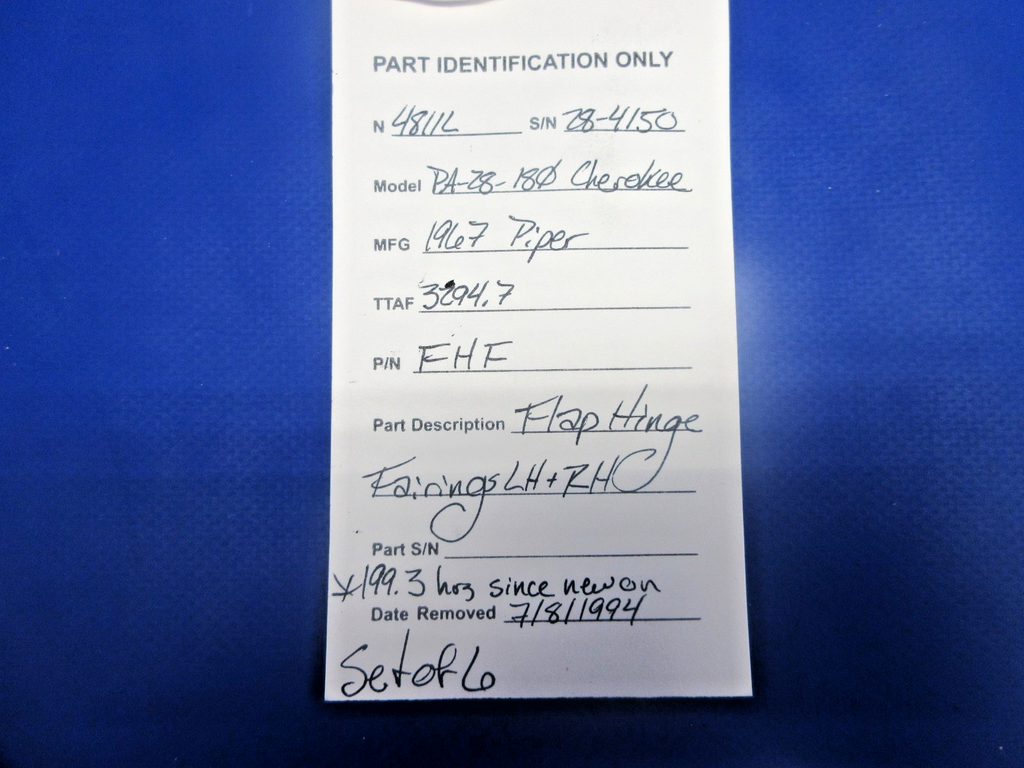 PART IDENTIFICATION ONLY
N 4811L S/N 28-4150
Model PA-28-180 Cherokee
MFG 1967 Piper
TTAF 3294.7
P/N FHF
Part Description Flap Hinge
Fairings LH + RH
Part S/N
*199.3 hrs since new on
Date Removed 7/8/1994
Set of 6